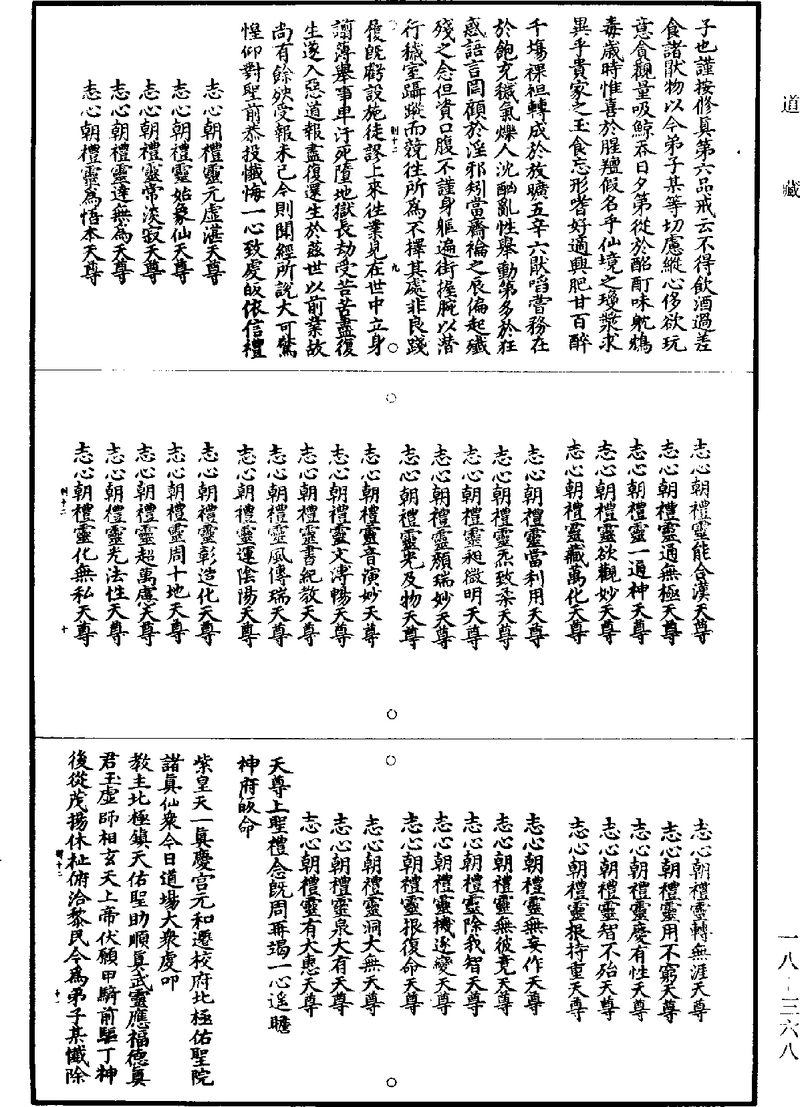 道藏
子也謹按修真第六品戒云不得飲酒過差
食諸猒物以令弟子某等切慮縱心侈欲玩
意貪觀量吸鯨吞日夕第從於酩酊味躭鴆
毒歲時惟喜於腥羶假名乎仙境之瓊漿求
異乎貴家之玉食忘形嗜好適興肥甘百醉
千塲裸袒轉成於放曠五辛六猒啗嘗務在
於飽充穢氣爍人沈酗亂性舉動第多於狂
惑語言罔顧於淫邪矧當齋禴之辰偏起殱
殘之念但資口腹不謹身軀遍街握腕以潛
行穢室躡蹤而競往所為不擇其處非良踐
履既虧設施徒謬上來往業見在世中立身
謝薄舉事卑汙死墮地獄長劫受苦苦盡復
生遂入惡道報盡復還生於茲世以前業故
尚有餘殃受報未已今則聞經所說大可驚
惶仰對聖前恭投懺悔一心致虔皈依信禮
志心朝禮靈元虛湛天尊
志心朝禮靈始象仙天尊
志心朝禮靈常淡寂天尊
志心朝禮靈達無為天尊
志心朝禮靈為悟本天尊
志心朝禮靈能合漠天尊
志心朝禮靈通無極天尊
志心朝禮靈一通神天尊
志心朝禮靈欲觀妙天尊
志心朝禮靈藏萬化天尊
志心朝禮靈當利用天尊
志心朝禮靈炁致柔天尊
志心朝禮靈昶微明天尊
志心朝禮靈顏瑞妙天尊
志心朝禮靈光及物天尊
志心朝禮靈音演妙天尊
志心朝禮靈文溥暢天尊
志心朝禮靈書紀教天尊
志心朝禮靈風傳瑞天尊
志心朝禮靈運陰陽天尊
志心朝禮靈彰造化天尊
志心朝禮靈周十地天尊
志心朝禮靈超萬慮天尊
志心朝禮靈光法性天尊
志心朝禮靈化無私天尊
志心朝禮靈轉無涯天尊
志心朝禮靈用不窮天尊
志心朝禮靈慶有性天尊
志心朝禮靈智不殆天尊
志心朝禮靈根持重天尊
志心朝禮靈無妄作天尊
志心朝禮靈無彼竟天尊
志心朝禮靈除我智天尊
志心朝禮靈機遂變天尊
志心朝禮靈根復命天尊
志心朝禮靈洞大無天尊
志心朝禮靈泉大有天尊
志心朝禮靈有大惠天尊
天尊上聖禮念既周再竭一心遙瞻
神府皈命
紫皇天一真慶宫元和遷校府北極佑聖院
諸真仙衆今日道場大衆虔叩
教主北極鎮天佑聖助順真武靈應福德真
君玉虛師相玄天上帝伏願甲騎前驅丁神
後從茂揚休祉俯洽黎民今為弟子某懺除
一八-三六八